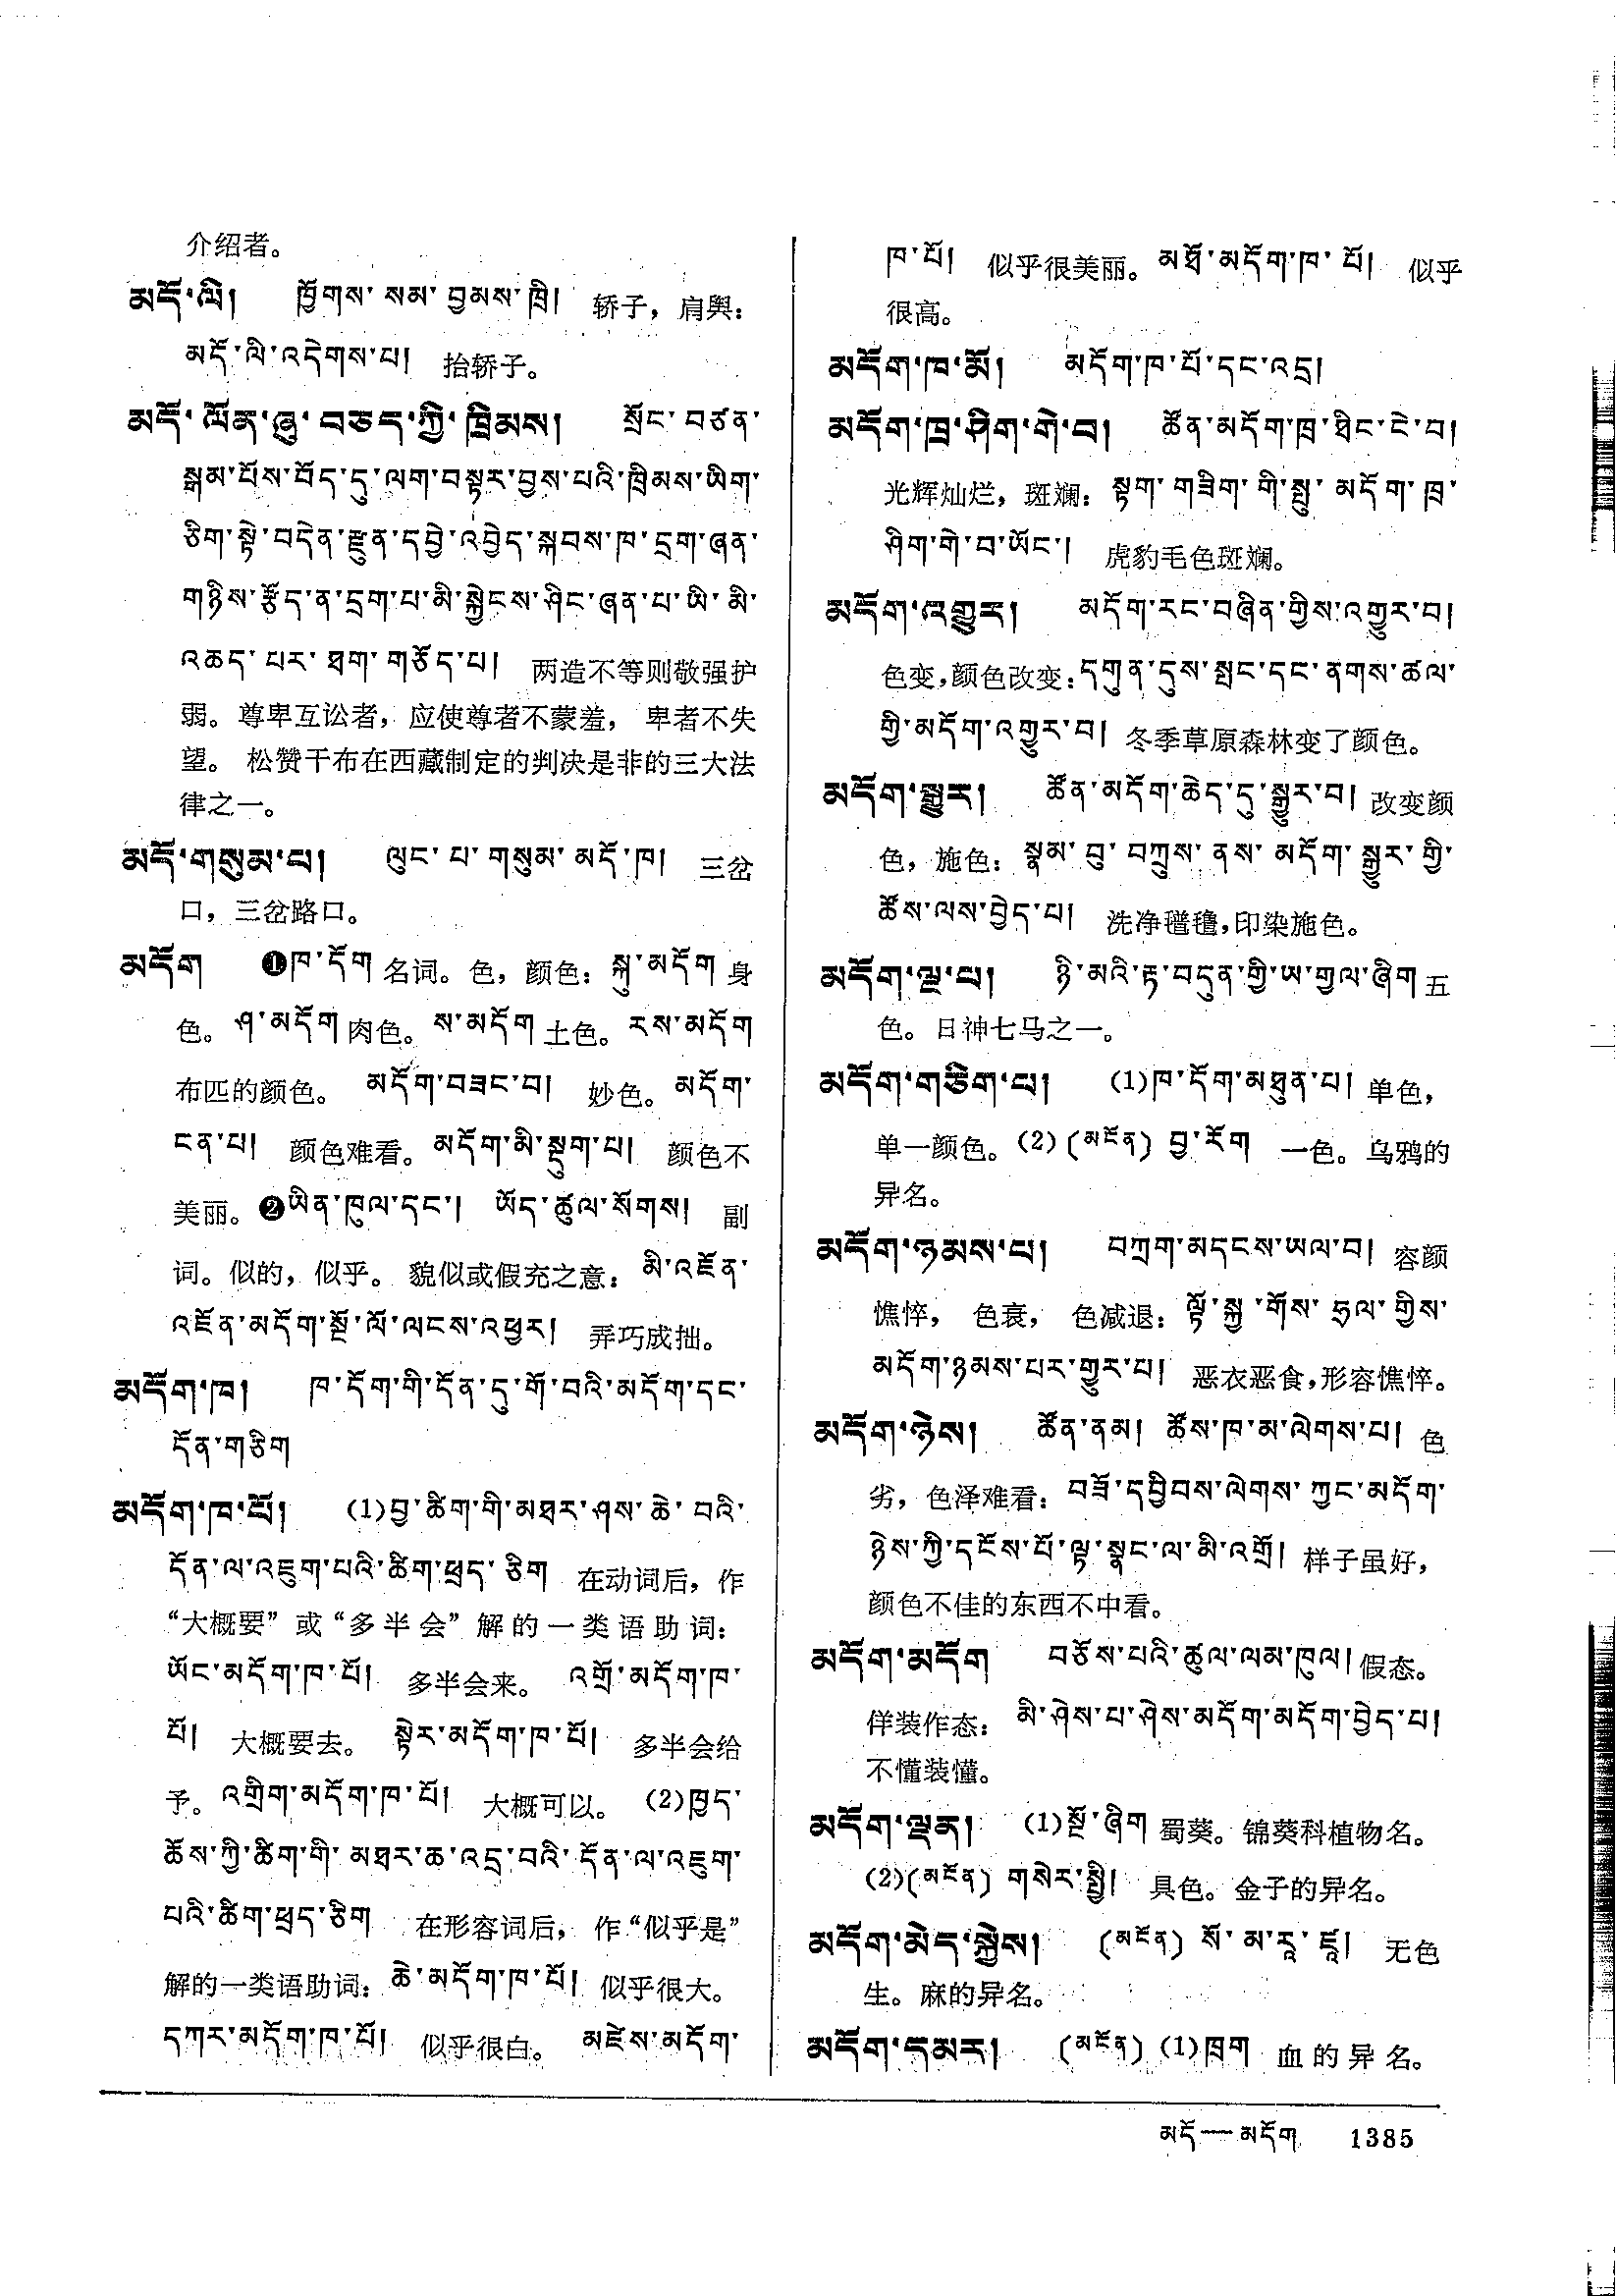 介绍者。
མདོ་ལི།  ཁྱོགས་ སམ་ བྱམས་ ཁྲི།  轿子，肩舆：
མདོ་ལི་འདེགས་པ།  抬轿子。
མདོ་ ལོན་ཞུ་ བཅད་ཀྱི་ ཁྲིམས།  སྲོང་ བཙན་
སྒམ་པོས་བོད་དུ་ལག་བསྟར་བྱས་པའི་ཁྲིམས་ཡིག་
ཅིག་སྟེ་བདེན་རྫུན་དབྱེ་འབྱེད་སྐབས་ཁ་དྲག་ཞན་
གཉིས་རྩོད་ན་དྲག་པ་མི་སྐྱེངས་ཤིང་ཞན་པ་ཡི་མི་
འཆད་ པར་ ཐག་ གཅོད་པ།  两造不等则敬强护
弱。尊卑互讼者，应使尊者不蒙羞， 卑者不失
望。 松赞干布在西藏制定的判决是非的三大法
律之一。
མདོ་གསུམ་པ།  ལུང་ པ་ གསུམ་ མདོ་ཁ།  三岔
口，三岔路口。
མདོག  ❶ཁ་དོག 名词。色，颜色：སྐུ་མདོག 身
色。ཤ་མདོག 肉色。ས་མདོག 土色。རས་མདོག
布匹的颜色。 མདོག་བཟང་བ།  妙色。མདོག་
ངན་པ།  颜色难看。མདོག་མི་སྡུག་པ།  颜色不
美丽。❷ཡིན་ཁུལ་དང་།  ཡོད་ཚུལ་སོགས།  副
词。似的，似乎。 貌似或假充之意：མི་འཇོན་
འཇོན་མདོག་སྔོ་ལོ་ལངས་འཕྱར།  弄巧成拙。
མདོག་ཁ།  ཁ་དོག་གི་དོན་དུ་གོ་བའི་མདོག་དང་
དོན་གཅིག
མདོག་ཁ་པོ།  (1)བྱ་ཚིག་གི་མཐར་ཤས་ཆེ་ བའི་
དོན་ལ་འཇུག་པའི་ཚིག་ཕྲད་ཅིག  在动词后，作
“大概要” 或 “多半会” 解的一类语助词：
ཡོང་མདོག་ཁ་པོ།  多半会来。 འགྲོ་མདོག་ཁ་
པོ།  大概要去。 སྟེར་མདོག་ཁ་པོ།  多半会给
予。འགྲིག་མདོག་ཁ་པོ།  大概可以。 (2)ཁྱད་
ཆོས་ཀྱི་ཚིག་གི་ མཐར་ཆ་འདྲ་བའི་ དོན་ལ་འཇུག་
པའི་ཚིག་ཕྲད་ཅིག  在形容词后， 作“似乎是”
解的一类语助词：ཆེ་མདོག་ཁ་པོ།  似乎很大。
དཀར་མདོག་ཁ་པོ།  似乎很白。 མཛེས་མདོག་
ཁ་པོ།  似乎很美丽。མཐོ་མདོག་ཁ་ པོ།  似乎
很高。
མདོག་ཁ་མོ།  མདོག་ཁ་པོ་དང་འདྲ།
མདོག་ཁྲ་ཤིག་གེ་བ།  ཚོན་མདོག་ཁྲ་ཐིང་ངེ་བ།
光辉灿烂，斑斓：སྟག་ གཟིག་ གི་སྤུ་ མདོག་ཁྲ་
ཤིག་གེ་བ་ཡོང་།  虎豹毛色斑斓。
མདོག་འགྱུར།  མདོག་རང་བཞིན་གྱིས་འགྱུར་བ།
色变，颜色改变：དགུན་དུས་སྤང་དང་ནགས་ཚལ་
གྱི་མདོག་འགྱུར་བ།  冬季草原森林变了颜色。
མདོག་སྒྱུར།  ཚོན་མདོག་ཆེད་དུ་སྒྱུར་བ།  改变颜
色，施色：སྣམ་ བུ་ བཀྲུས་ ནས་ མདོག་ སྒྱུར་གྱི་
ཚོས་ལས་བྱེད་པ།  洗净氆氇，印染施色。
མདོག་ལྔ་པ།  ཉི་མའི་རྟ་བདུན་གྱི་ཡ་གྱལ་ཞིག 五
色。日神七马之一。
མདོག་གཅིག་པ།  (1)ཁ་དོག་མཐུན་པ།  单色，
单一颜色。(2) (མངོན) བྱ་རོག  一色。乌鸦的
异名。
མདོག་ཉམས་པ།  བཀྲག་མདངས་ཡལ་བ།  容颜
憔悴， 色衰， 色减退：ལྟོ་སྐྱ་གོས་ ཧྲལ་གྱིས་
མདོག་ཉམས་པར་གྱུར་པ།  恶衣恶食，形容憔悴。
མདོག་ཉེས།  ཚོན་ནམ།  ཚོས་ཁ་མ་ལེགས་པ།  色
劣，色泽难看：བཟོ་དབྱིབས་ལེགས་ཀྱང་མདོག་
ཉེས་ཀྱི་དངོས་པོ་ལྟ་སྣང་ལ་མི་འགྲོ།  样子虽好，
颜色不佳的东西不中看。
མདོག་མདོག  བཅོས་པའི་ཚུལ་ལམ་ཁུལ།  假态。
佯装作态：མི་ཤེས་པ་ཤེས་མདོག་མདོག་བྱེད་པ།
不懂装懂。
མདོག་ལྡན།  (1)སྔོ་ཞིག 蜀葵。锦葵科植物名。
(2)(མངོན) གསེར་སྤྱི།  具色。金子的异名。
མདོག་མེད་སྐྱེས།  (མངོན) སོ་མ་རཱ་ཛཱ།  无色
生。麻的异名。
མདོག་དམར།  (མངོན) (1)ཁྲག  血的异名。
མདོ—མདོག  1385